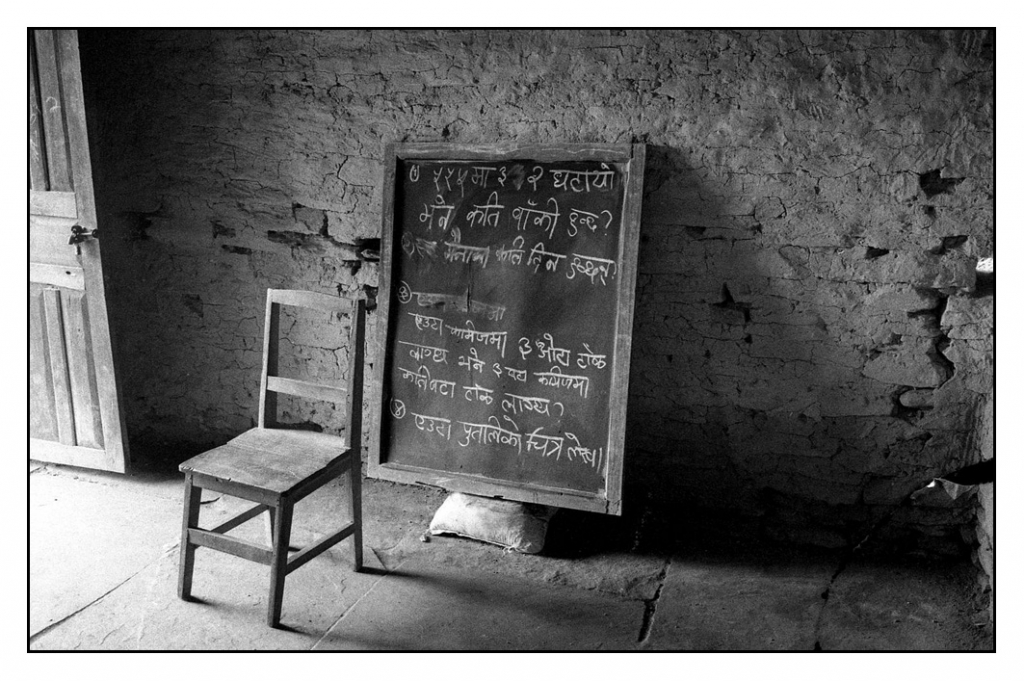 १) ५२५ मा ३ २ घटायो
भने कति बाँकी हुन्छ?
कति दिन हुन्छन्?
३)
एउटा कमिजमा ३ ओटा टाँक
लाग्छ भने ३ वटा कमिजमा
कतिवटा टाँक लाग्छ?
४) एउटा पुतलिको चित्र लेख।